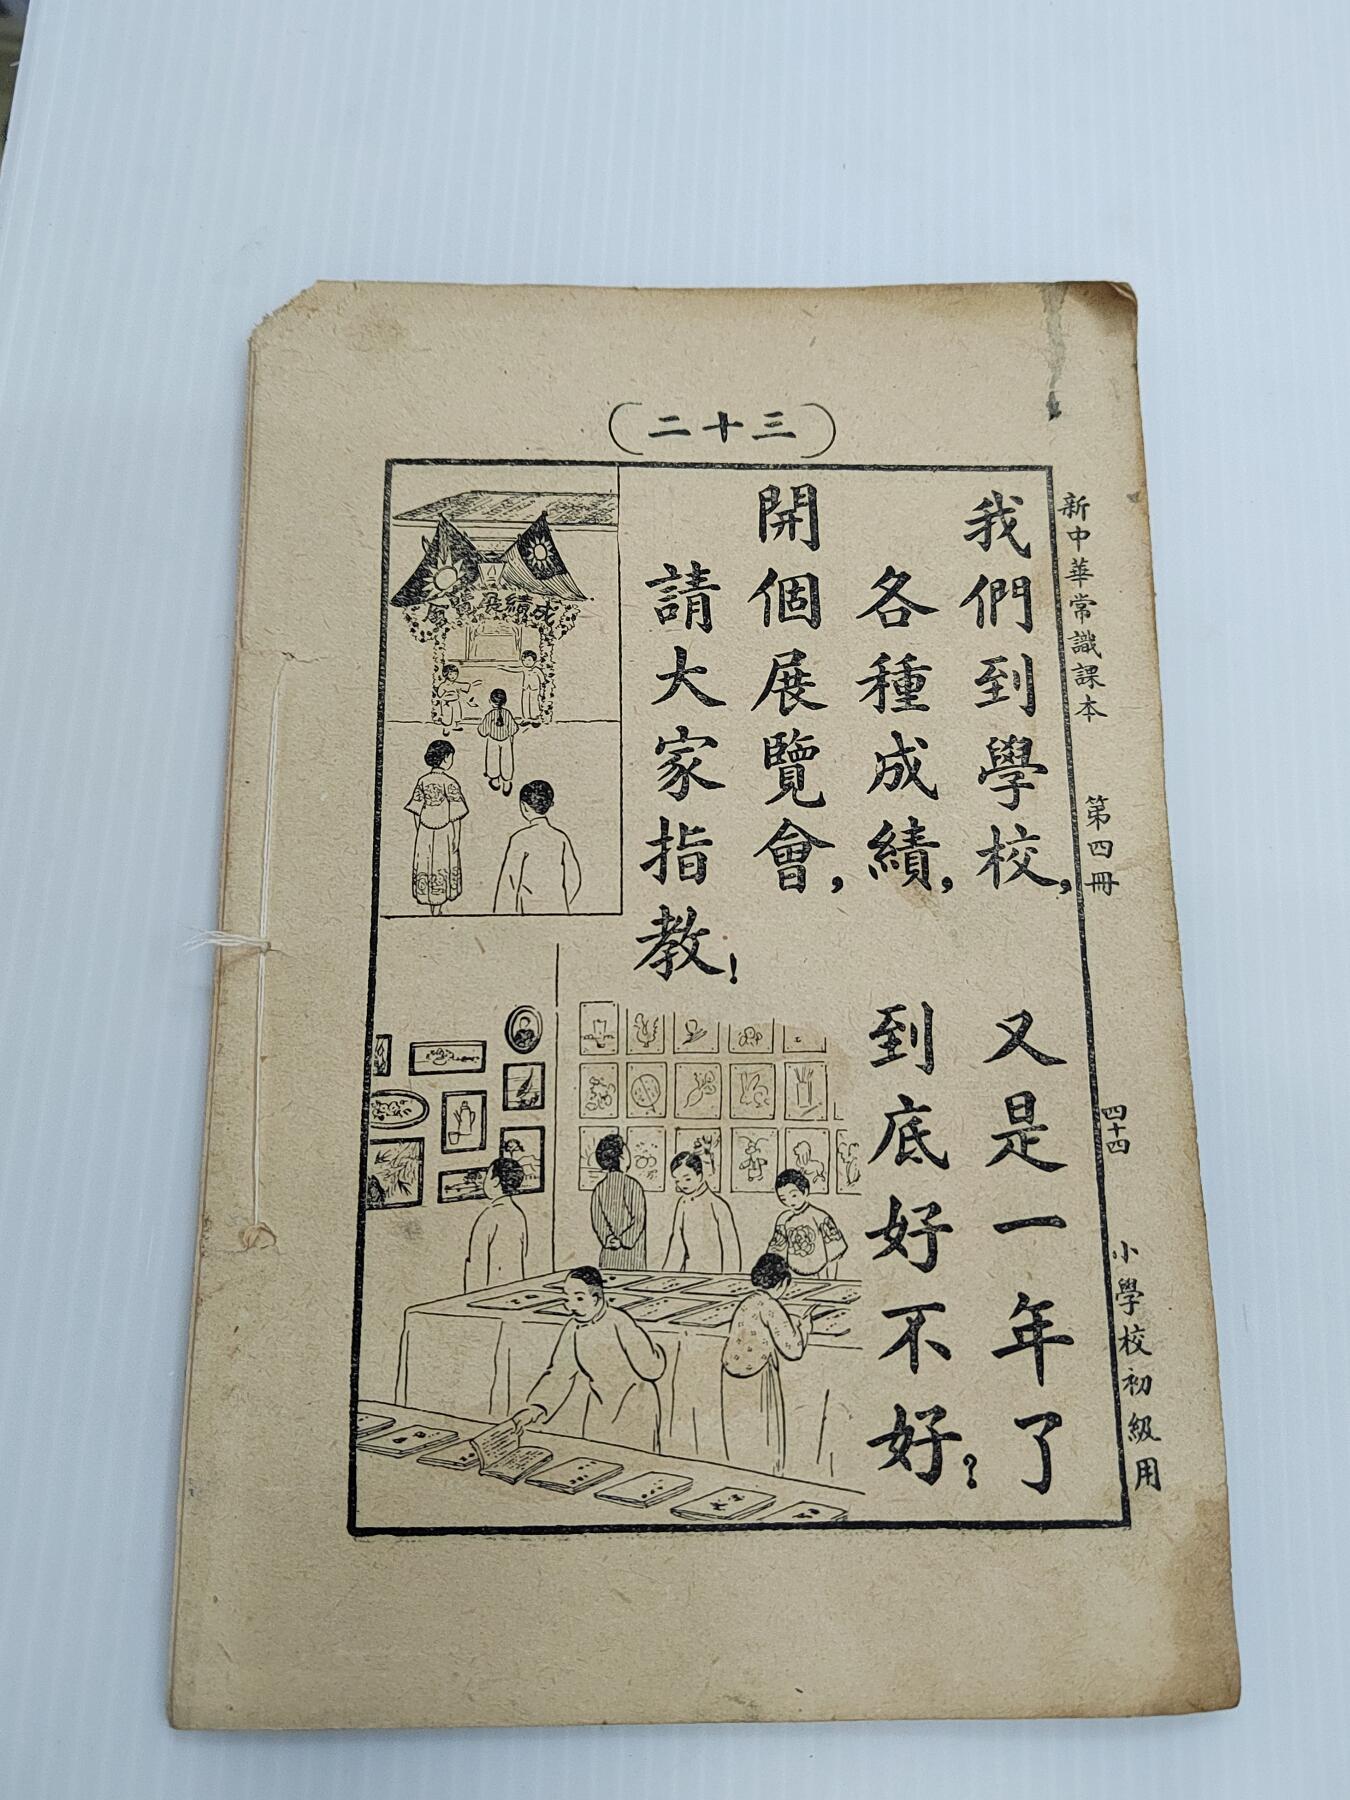 新中華常識課本 第四冊 四十四 小學校初級用
（三十二）
我們到學校，又是一年了
各種成績，到底好不好？
開個展覽會，
請大家指教！
成績展覽會